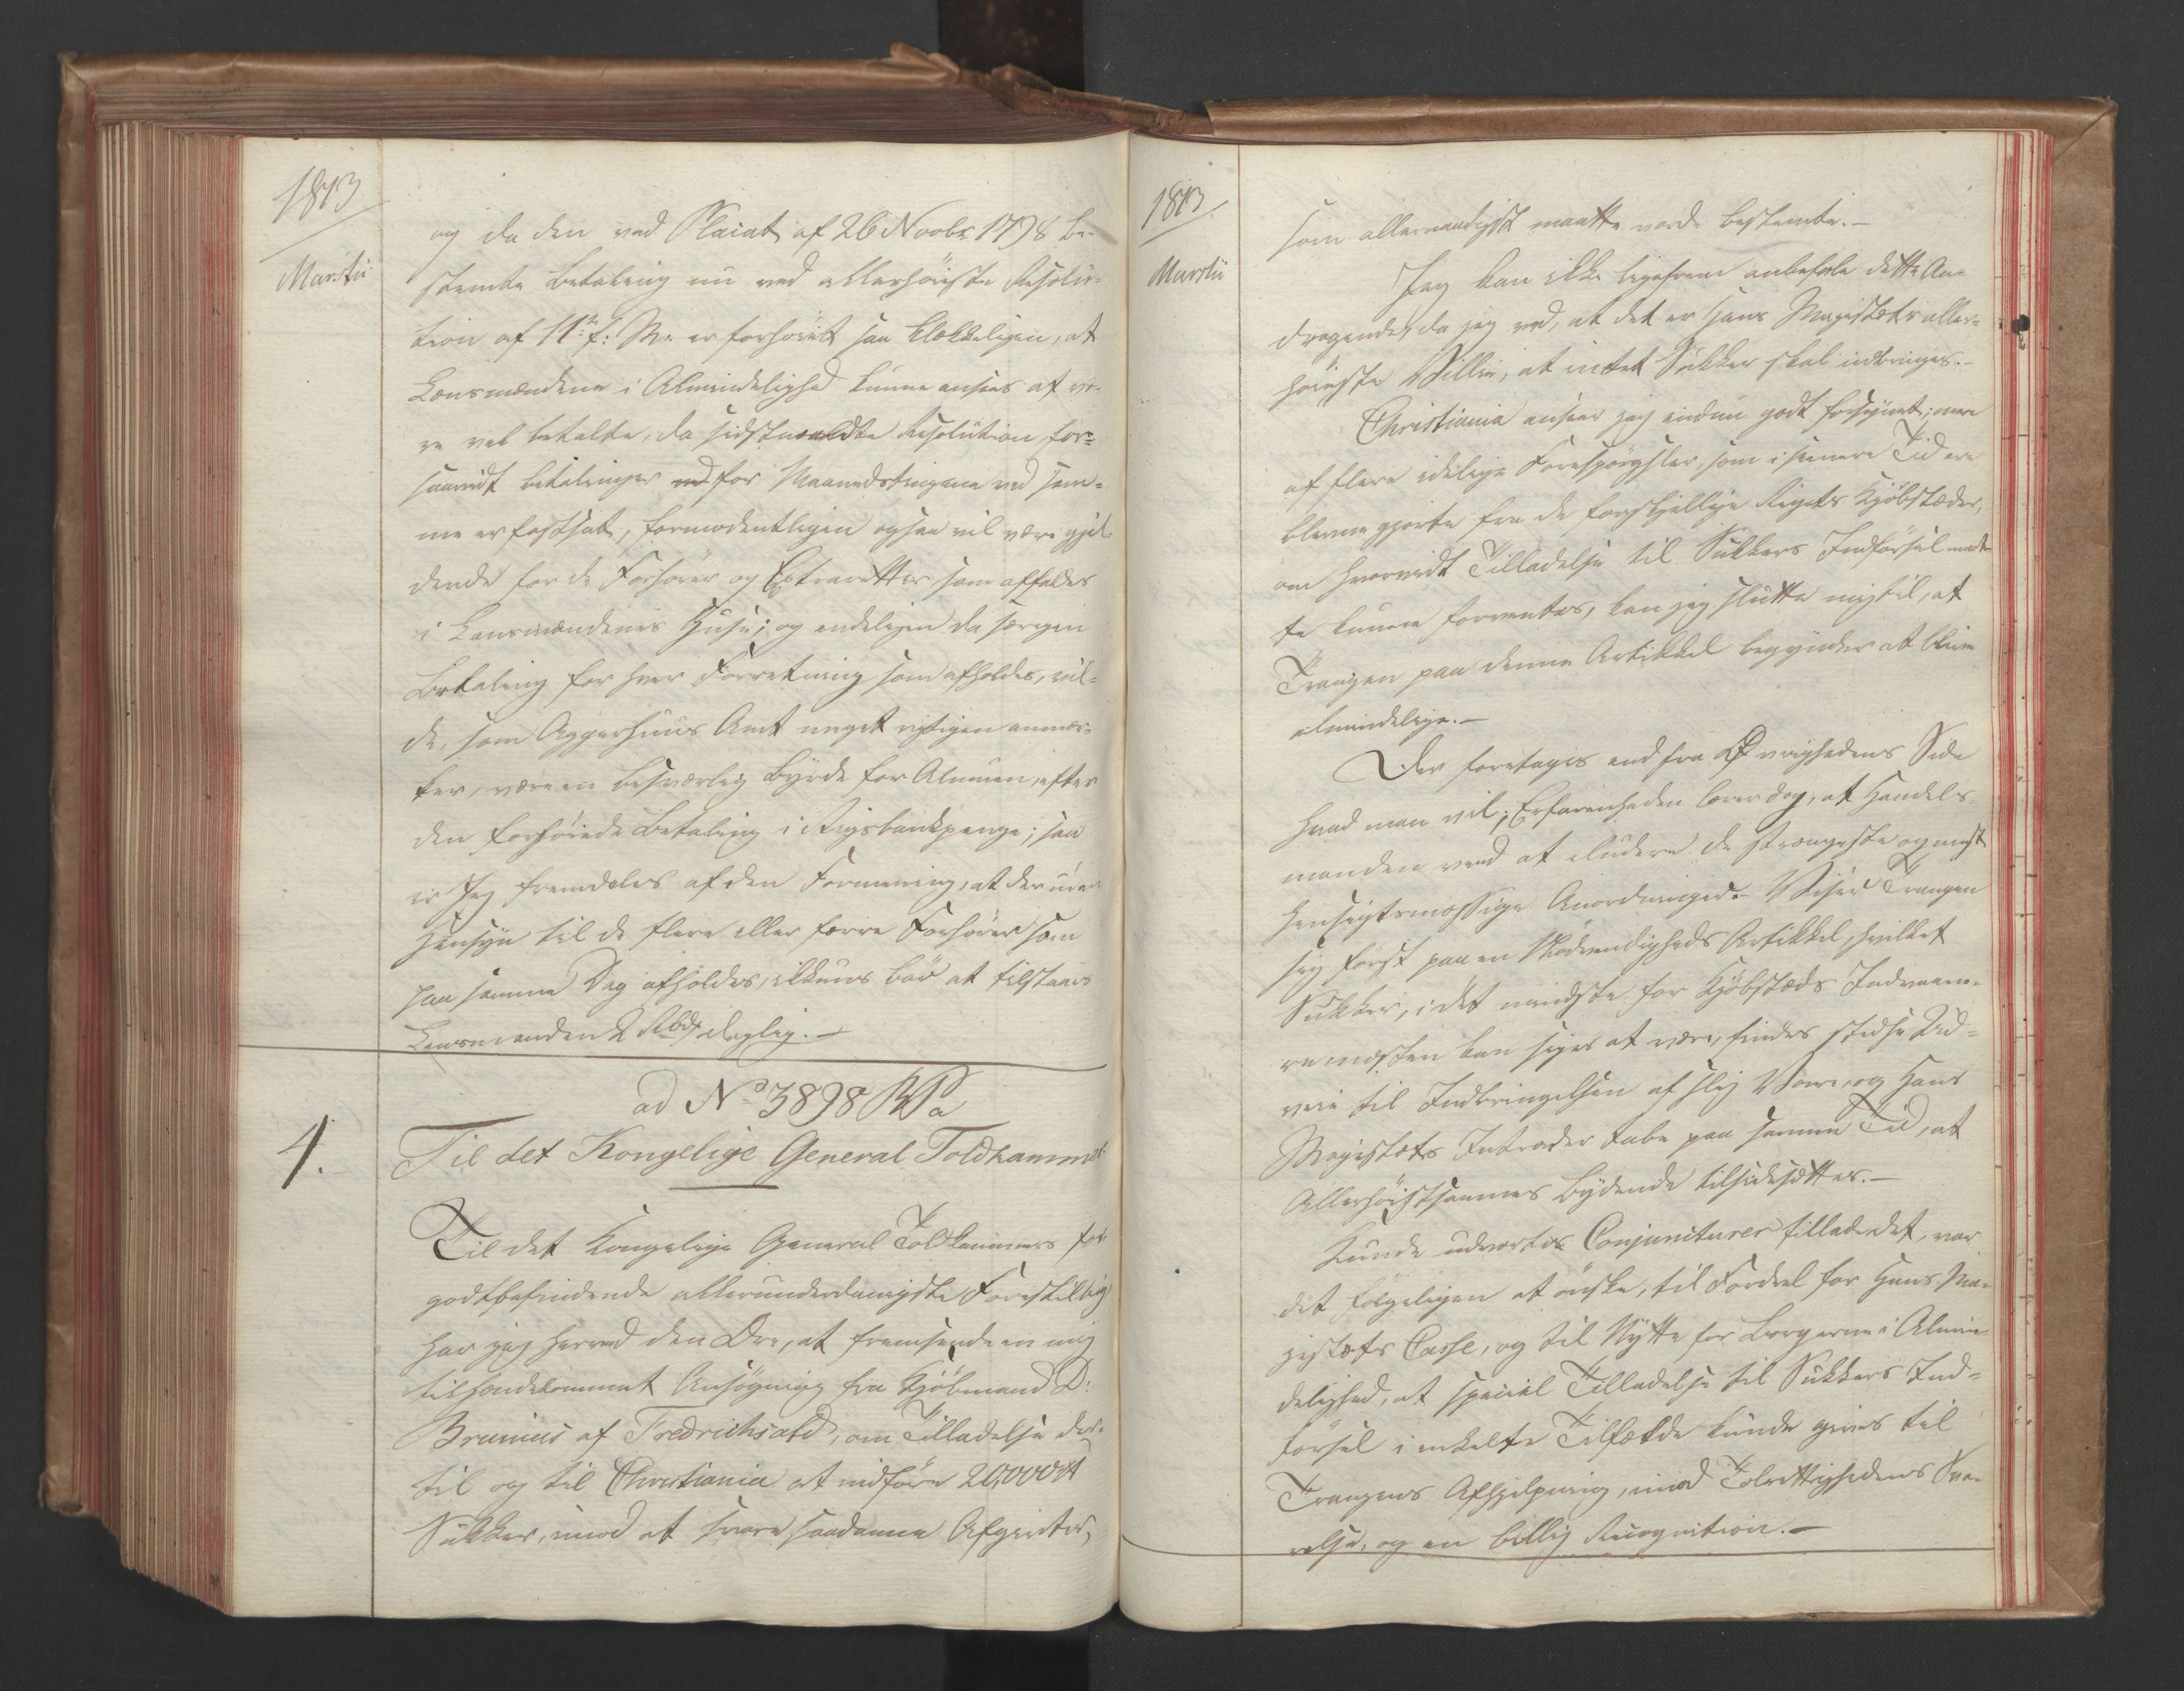 1813
Martii
og da den ved Placat af 26 Novbr 1798 be-
stemte Betaling nu ved allerhöieste Resolu-
tion af 11te f: M: er forhöiet saa klækkeligen, at
Lensmændene i Almindelighed kunne ansees at væ-
re vel betalte, da sidstmældte Resolution, for-
saavidt Betalinger for Maanedstingene ved sam-
me er fastsat, formodentligen ogsaa vil være gjel-
dende for de Forhörer og Extraretter som affoldes
i Lensmændenes Huse; og endeligen da særegen
Betaling for hver Forretning som afholdes, vil-
de, som Aggershuus Amt meget rigtigen anmær-
ker, være en besværlig Byrde for Almuen, efter
den forhöiede Betaling i Rigsbankpenge; saa
er Jeg fremdeles af den Formening, at der uden
Hensyn til de flere eller færre Forhörer som
paa samme Dag afholdes, ikkuns bör at tilstaaes
Lensmanden 2 Rbd daglig.-
ad No 3898
4.
Til det Kongelige General Toldkammer
Til det Kongelige General Toldkammers for
godtbefindende allerunderdanigste Forestilling
har jeg herved den Ære, at fremsende en mig
tilhændekommet Ansögning fra Kjöbmand D:
Brunius af Fredrichshald, om Tilladelse der-
til og til Christiania at indföre 20,000 ℔
Sukker, imod at svare saadanne Afgivter,
1813.
Martii
som allernaadigst maatte vorde bestemte.-
Jeg kan ikke ligefrem anbefale dette An-
dragende, da jeg ved, at det er Hans Majestæts aller-
höieste Villie, at intet Sukker skal indbringes.-
Christiania anseer jeg endnu godt forsynet; men
af flere idelige Forespörgsler, som i senere Tid ere
blevne gjorte fra de forskjellige Rigets Kjöbstæder,
om hvorvidt Tilladelse til Sukkers Indförsel maat-
te kunne forventes, kan jeg slutte mig til, at
Trangen paa denne Artikkel begynder at blive
almindelig.-
Der foretages end fra Övrighedens Side
hvad man vil; Erfarenheden lærer dog, at Handels
manden veed at eludere de strængeste og mest
hensigtsmæssige Anordninger. Viser Trangen
sig först paa en Nödvendigheds Artikkel, hvilket
Sukker, i det mindste for Kjöbstæds Indvaane-
re næsten kan siges at være, findes stedse Ud-
veie til Indbringelsen af slig Vare, og Hans
Majestæts Intrader tabe paa samme Tid, at
Allerhöistsammes Bydende tilsidesættes.-
Kunde udvortes Conjuncturer tillade det, var
det fölgeligen at önske, til Fordeel for Hans Ma-
jestæts Casse, og til Nytte for Borgerne i Almin-
delighed, at special Tilladelse til Sukkers Ind-
försel i enkelte Tilfælde kunde gives til
Trangens Afhjelpning, imod Toldrettighedens Sva-
relse, og en billig Recognition.-